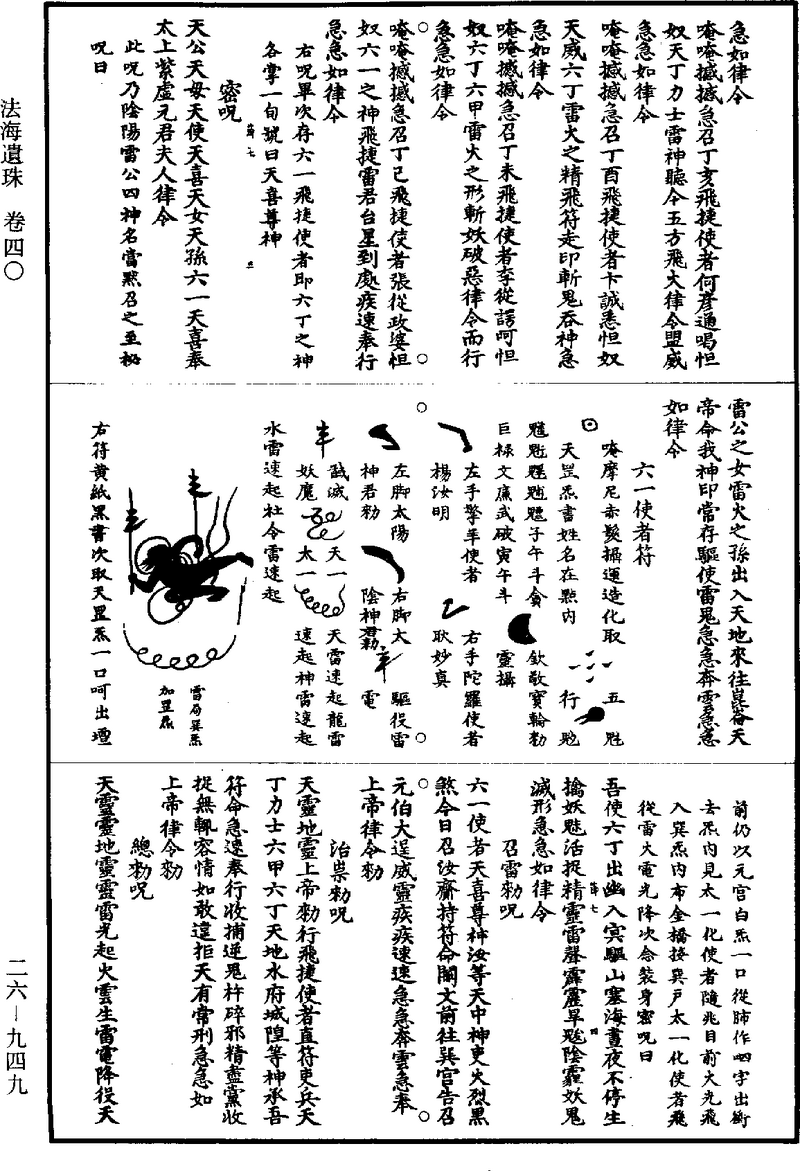 法海遺珠 卷四〇
二六—九四九
急如律令
唵唵撼撼急召丁亥飛捷使者何彥通喝怛
奴天丁力士雷神聽令五方飛大律令盟威
急急如律令
唵唵撼撼急召丁酉飛捷使者卞誠悉怛奴
天威六丁雷火之精飛符走印斬鬼吞神急
急如律令
唵唵撼撼急召丁未飛捷使者李從諤呵怛
奴六丁六甲雷火之形斬妖破惡律令而行
急急如律令
唵唵撼撼急召丁巳飛捷使者張從政婆怛
奴六一之神飛捷雷君台星到處疾速奉行
急急如律令
右呪畢次存六一飛捷使者即六丁之神
各掌一旬號曰天喜尊神
密呪
天公天母天使天喜天女天孫六一天喜奉
太上紫虛元君夫人律令
此呪乃陰陽雷公四神名當默召之至祕
呪曰
雷公之女雷火之孫出入天地來往崑崙天
帝命我神印常存驅使雷鬼急急奔雲急急
如律令
六一使者符
唵摩尼赤髮攝運造化取 五
天罡炁書姓名在點內 行
子午斗貪 欽敬寶輪勑
巨祿文廉武破寅午斗 靈攝
左手擎羊使者 右手陀羅使者
楊汝明 耿妙真
左脚太陽 右脚太 驅役雷
神君勑 陰神君勑 電
天一 天雷速起龍雷
妖魔 太一 速起神雷速起
水雷速起社令雷速起
雷局巽炁
加罡炁
右符黄紙黑書次取天罡炁一口呵出壇
前仍以元宫白炁一口從肺作呬字出斷
去炁内見太一化使者隨兆目前大光飛
入巽炁内布金橋接巽戶太一化使者飛
從雷火電光降次念裝身密呪曰
吾使六丁出幽入冥驅山塞海晝夜不停生
擒妖魅活捉精靈雷聲霹靂旱魃陰霾妖鬼
滅形急急如律令
召雷勑呪
六一使者天喜尊神汝等天中神吏火烈黑
煞今日召汝齋持符命關文前往巽宫告召
元伯大逞威靈疾疾速速急急奔雲急奉
上帝律令勑
治祟勑呪
天靈地靈上帝勑行飛捷使者直符吏兵天
丁力士六甲六丁天地水府城隍等神承吾
符命急速奉行收捕逆鬼杵碎邪精盡黨收
捉無輒容情如敢違拒天有常刑急急如
上帝律令勑
總勑呪
天靈靈地靈靈雷光起火雲生雷電降役天